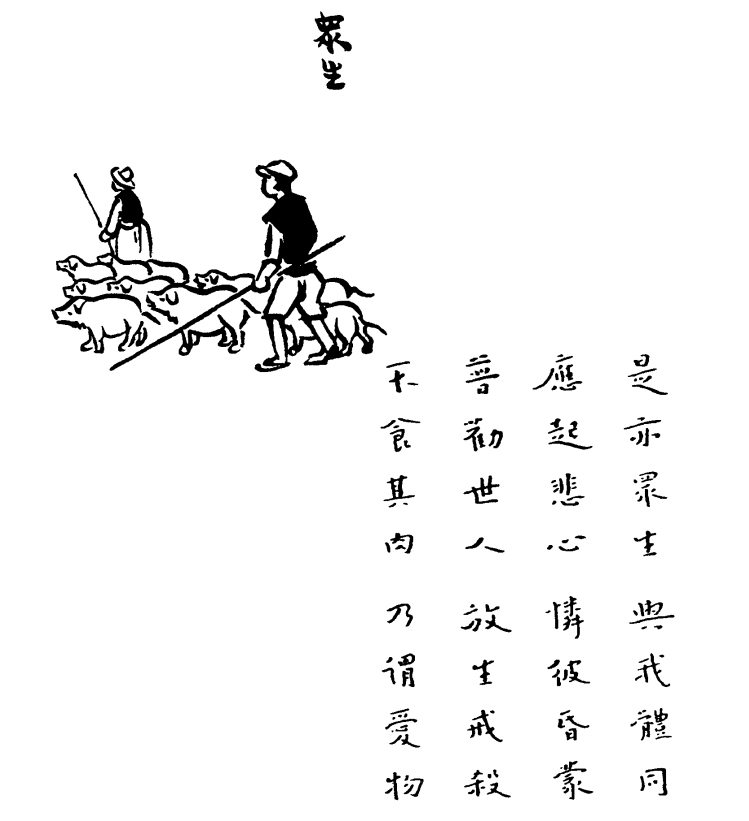 眾生
是亦眾生與我體同
應起悲心憐彼昏蒙
普勸世人放生戒殺
不食其肉乃謂愛物